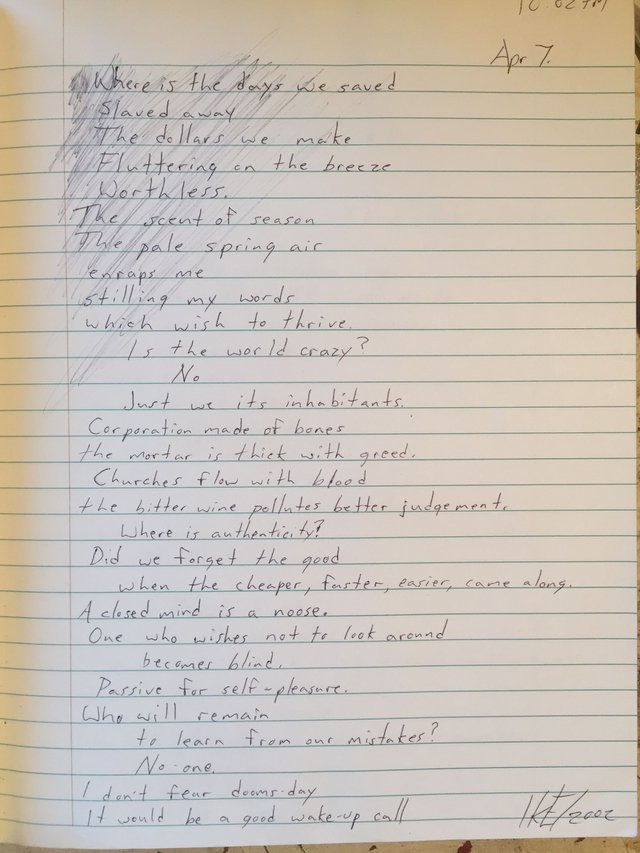 10:02 PM
Apr 7.
Where is the days we saved
Slaved away
The dollars we make
Fluttering on the breeze
Worthless.
The scent of season
The pale spring air
enraps me
stilling my words
which wish to thrive.
Is the world crazy?
No
Just we its inhabitants.
Corporation made of bones
the mortar is thick with greed.
Churches flow with blood
the bitter wine pollutes better judgement.
Where is authenticity?
Did we forget the good
when the cheaper, faster, easier, came along.
A closed mind is a noose.
One who wishes not to look around
becomes blind.
Passive for self-pleasure.
Who will remain
to learn from our mistakes?
No-one.
I don't fear dooms-day
It would be a good wake-up call
/2002